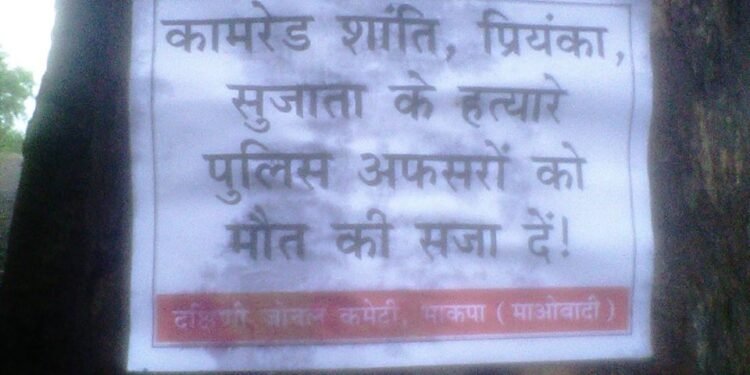 कामरेड शांति, प्रियंका,
सुजाता के हत्यारे
पुलिस अफसरों को
मौत की सजा दें!
दक्षिणी जोनल कमेटी, भाकपा ( माओवादी )